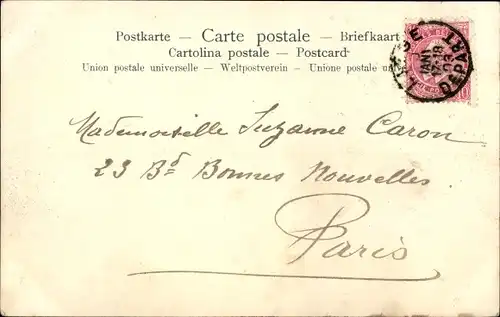 Postkarte – Carte postale – Briefkaart
Cartolina postale – Postcard
Union postale universelle – Weltpostverein – Unione postale
Mademoiselle Suzanne Caron
23 Bd Bonnes Nouvelles
Paris
LIEGE
JANV
17-18
03
DEPART
10